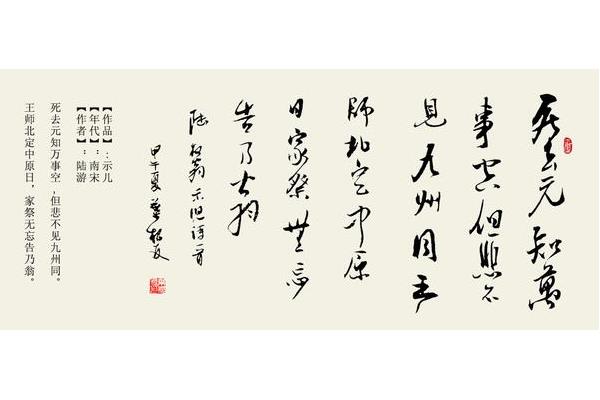 死去元知萬
事空但悲不
見九州同王
師北定中原
日家祭無忘
告乃翁
陸放翁示児詩一首
甲午夏
【作品】:示儿
【年代】:南宋
【作者】:陆游
死去元知万事空,但悲不见九州同。
王师北定中原日,家祭无忘告乃翁。